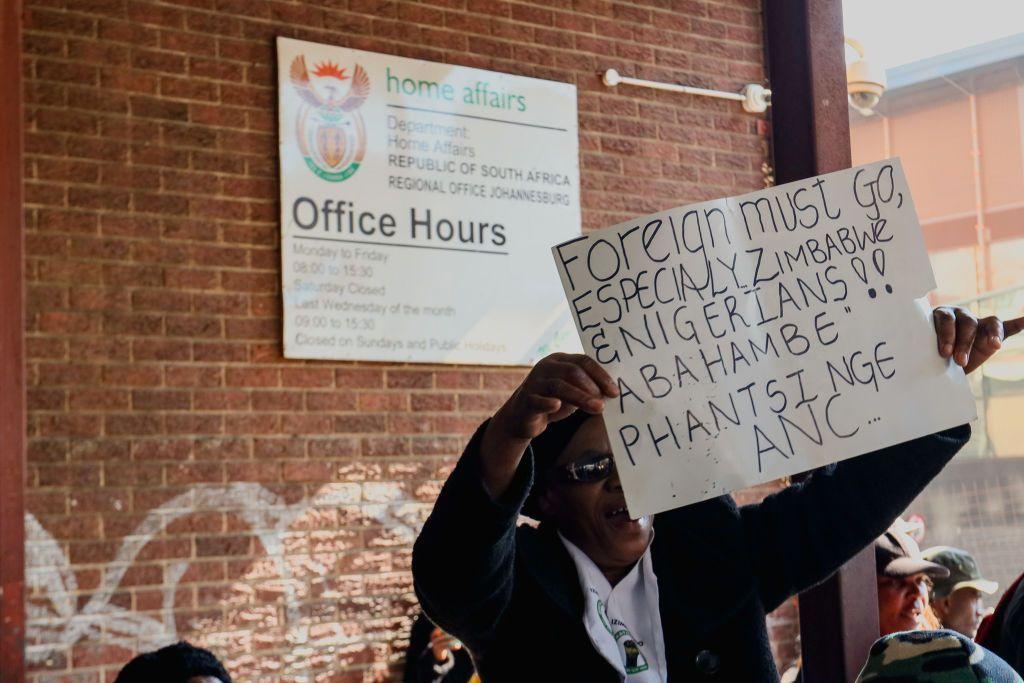 home affairs
Department:
Home Affairs
REPUBLIC OF SOUTH AFRICA
REGIONAL OFFICE JOHANNESBURG
Office Hours
Monday to Friday
08:00 to 15:30
Saturday Closed
Last Wednesday of the month
09:00 to 15:30
Closed on Sundays and Public Holidays
Foreign must Go,
ESPECIALLY ZIMBABWE
& NIGERIANS !!
ABAHAMBE"
PHANTSI NGE
ANC...